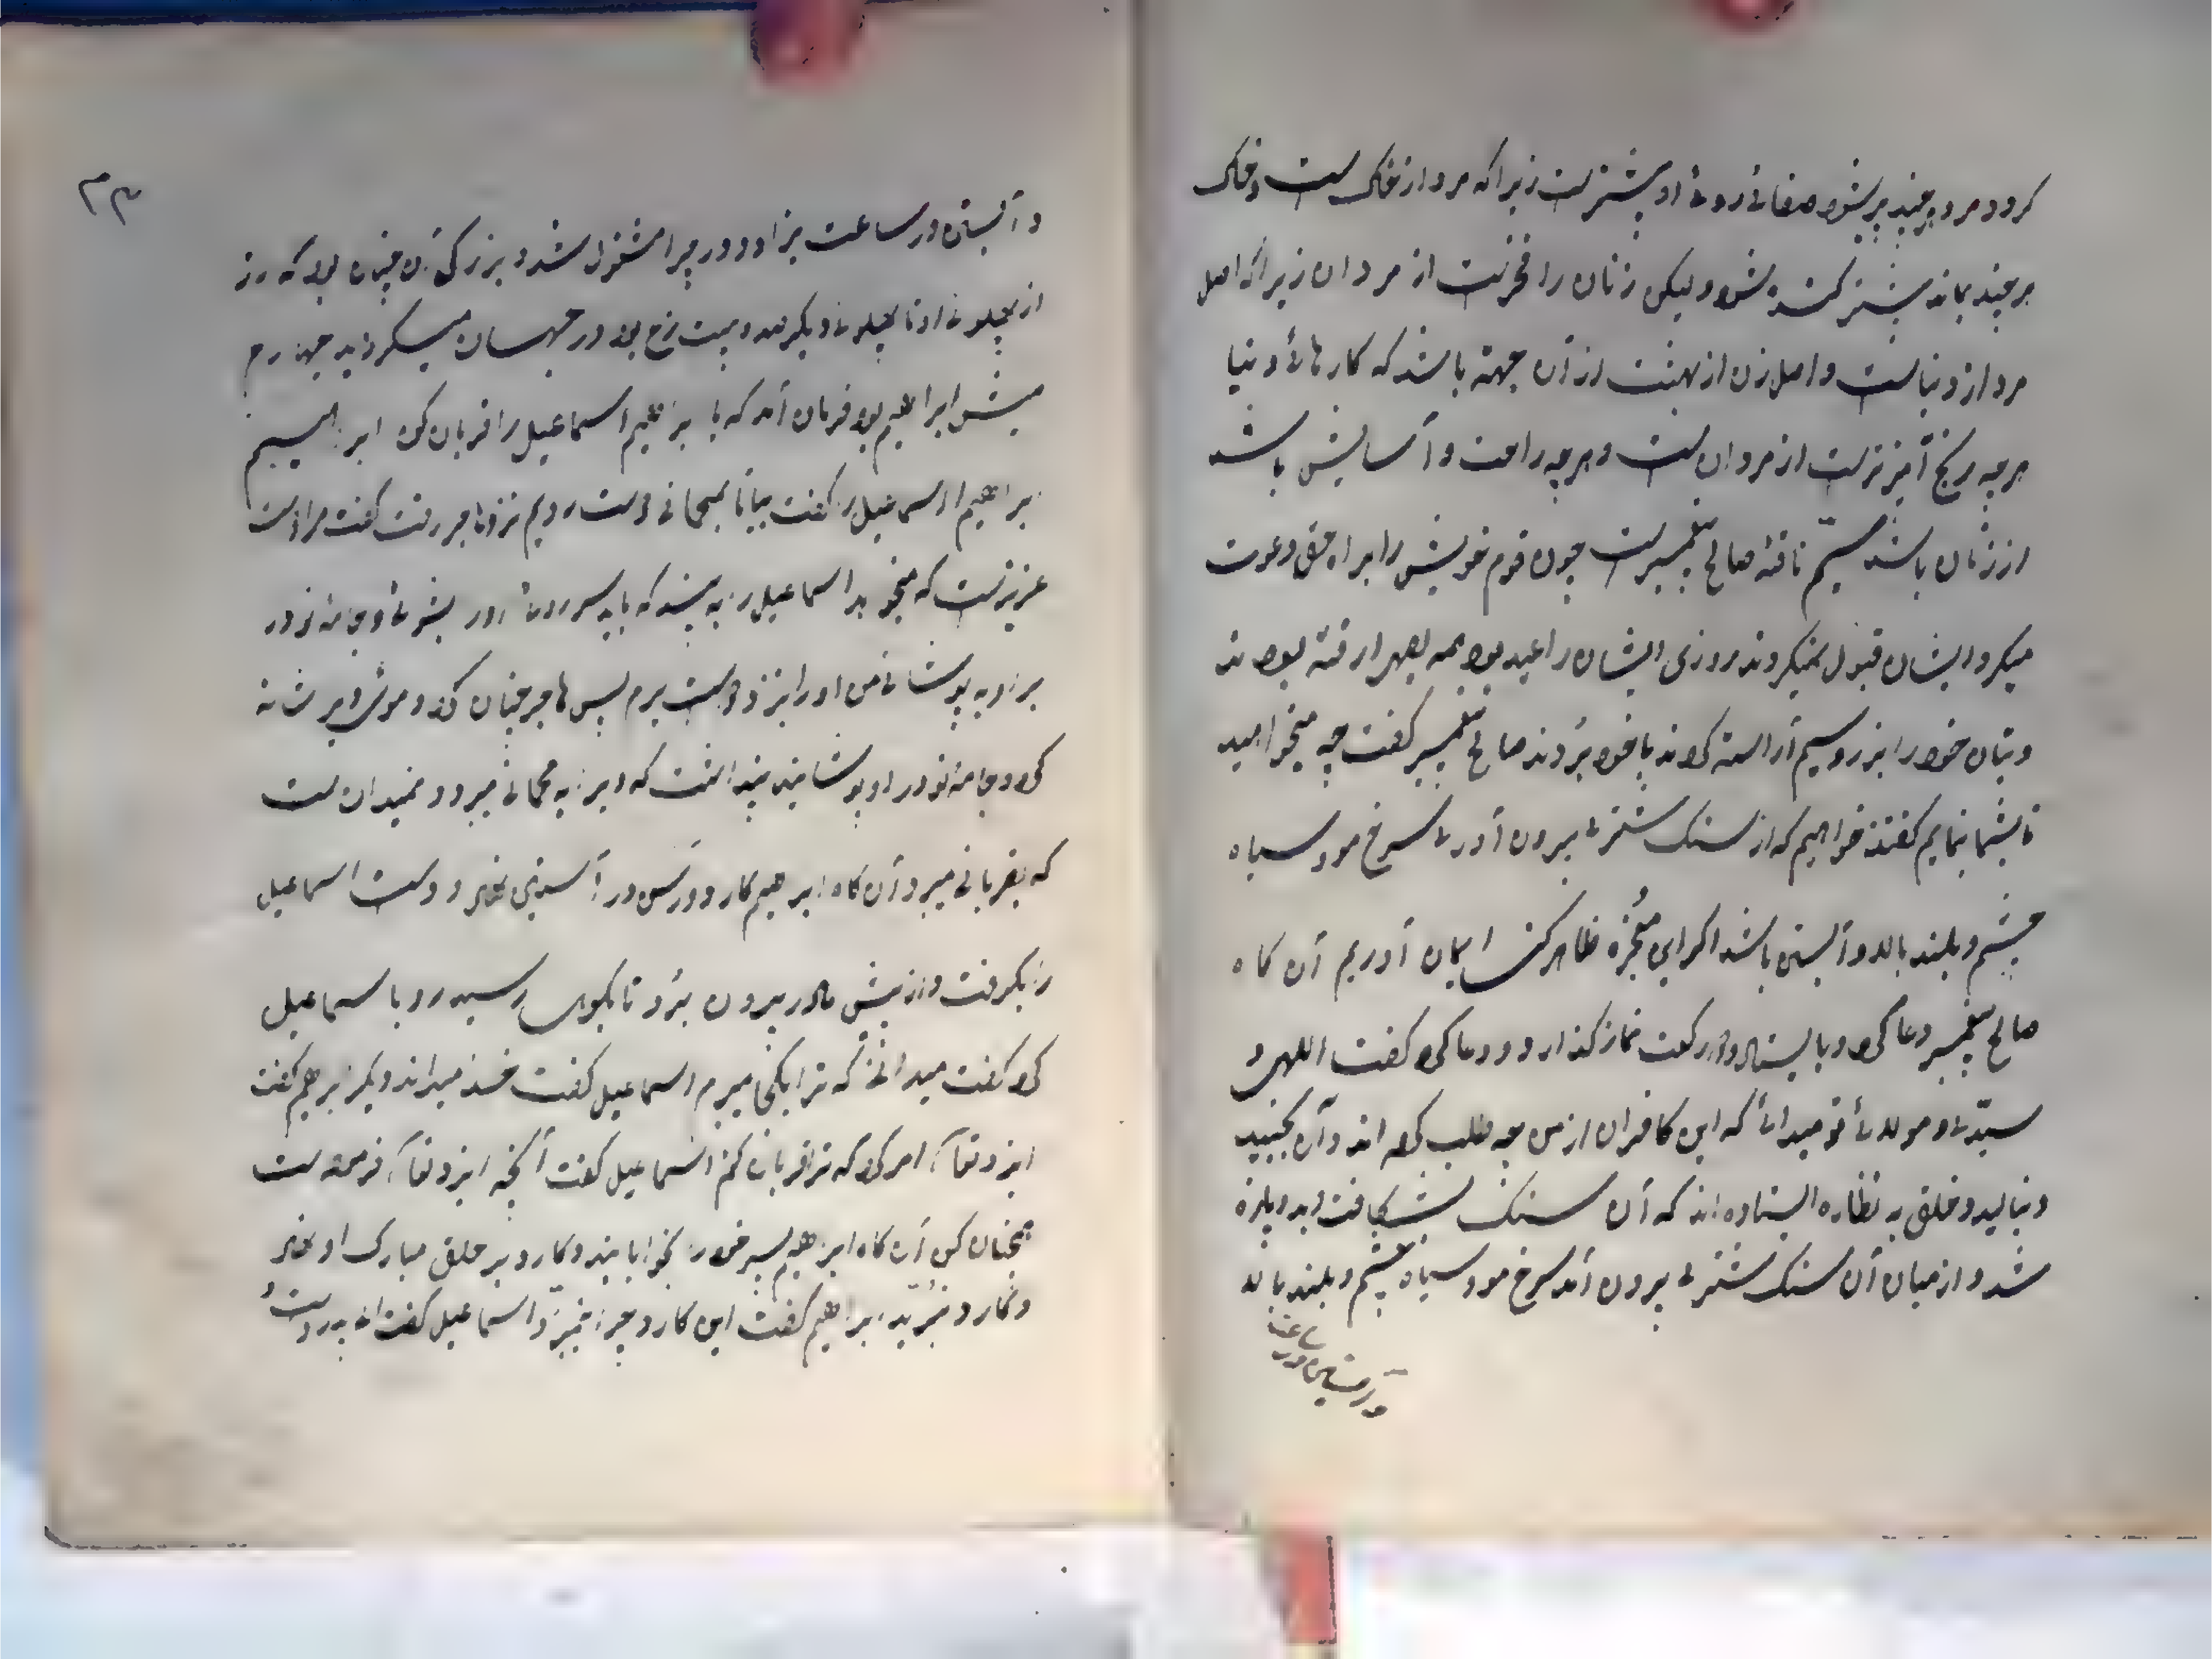 کردد مرد هرچند پیر شود صفائی روئ او بیشترست زیرا که مرد از خاک ست و خاک
هرچند بماند بیشتر کنده شود ولیکن زنان را فخرست از مردان زیرا که اصل
مرد از دنیاست و اصل زن از بهشت از آن جهة باشد که کارهائ دنیا
هرچه رنج آمیزترست از مردان ست و هرچه راحت و آسایش باشد
از زنان باشد سیم ناقهٔ صالح پیغمبرست چون قوم خویش را براه حق دعوت
میکرد ایشان قبول نمیکردند روزی ایشان را عید بود همه بصحرا رفته بودند
و بتان خود را بزر و سیم آراسته کرده‌اند با خود بردند صالح پیغمبر گفت چه میخواهید
تا بشما بنمایم گفتند خواهیم که از سنک شتری بیرون آوری سرخ مو و سیاه
چشم و بلند بالا و آبستن باشد اکر این معجزه ظاهر کنی ایمان آوریم آن کاه
صالح پیغمبر دعا کرد و بایستاد و دو رکعت نماز کذارد و دعا کرد کفت اللهی و
سیدی و مولائ تو میدانی که این کافران از من چه طلب کرده اند در آن بجنبید
و بنالید و خلق به نظاره ایستاده اند که آن سنک بشکافت و بدو پاره
شد و از میان آن سنک شتری بیرون آمد سرخ مو و سیاه چشم و بلند بالا
و آبستن در ساعت
۳۳
و آبستن در ساعت بزاد و در چرا مشغول شد و بزرکی آن چنان بود که از
از پهلوئ او تا پهلوئ دیکر صد و بیست کز بود در جهان میکردید چهارم
میش ابراهیم بود فرمان آمد که یا ابراهیم اسماعیل را قربان کن ابراهیم
ابراهیم اسماعیل را کفت بیا تا بمهمانی دوست رویم نزد هاجر رفت کفت مرا دوست
عزیزست که میخواهد اسماعیل را به بیند که باید سر و روئ او را بشوئ و جامهٔ نو در
بر او به پوشانی من او را بنزد دوست برم پس هاجر چنان کرد و موئ ویرا شانه
کرد و جامهٔ نو در او پوشانید پنداشت که ویرا به مهمانی میبرد و نمیدانست
که بقربانی میبرد آن کاه ابراهیم کارد و رسن در آستین نهاد و دست اسماعیل
را بکرفت و از پیش مادر بیرون برد تا بکوه رسید رو با اسماعیل
کرد کفت میدانی که ترا بکجا میبرم اسماعیل کفت خدا میداند دیکر ابراهیم کفت
ایزد تعالی امر کرد که ترا قربان کنم اسماعیل کفت آنچه ایزد تعالی فرموده ست
همچنان کن آن کاه ابراهیم پسر خود را بخوابانید و کارد بر حلق مبارک او نهاد
و کارد نبرید ابراهیم کفت این کارد چرا نمیبرد اسماعیل کفت ای پدر دست